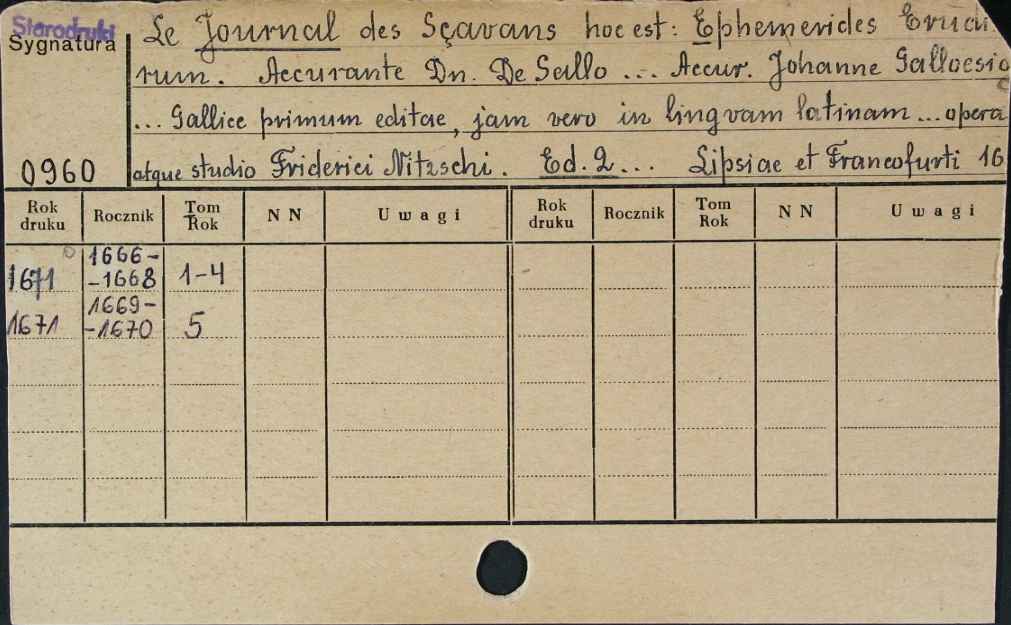 Starodruki
Sygnatura
0960
Le Journal des Sçavans hoc est: Ephemerides Erudi
rum. Accurante Dn. De Sallo ... Accur. Johanne Galloesio
... Gallice primum editae, jam vero in lingvam latinam ... opera
atque studio Friderici Nitzschi. Ed. 2 ... Lipsiae et Francofurti 16
Rok druku Rocznik Tom Rok N N Uwagi Rok druku Rocznik Tom Rok N N Uwagi
1671 1666- -1668 1-4
1671 1669- -1670 5